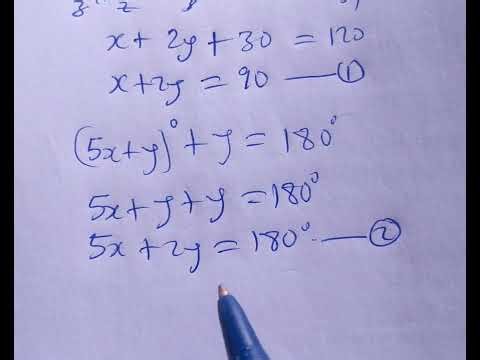 x + 2y + 30 = 120
x + 2y = 90 — ①
(5x+y)° + y = 180°
5x + y + y = 180°
5x + 2y = 180° — ②